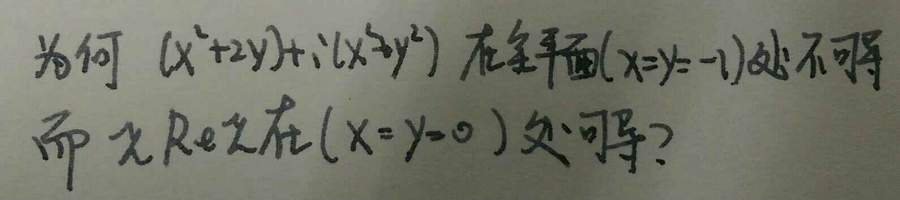 为何 (x²+2y)+i(x²+y²) 在全平面(x=y=-1)处不可导
而 zRez在(x=y=0)处可导?